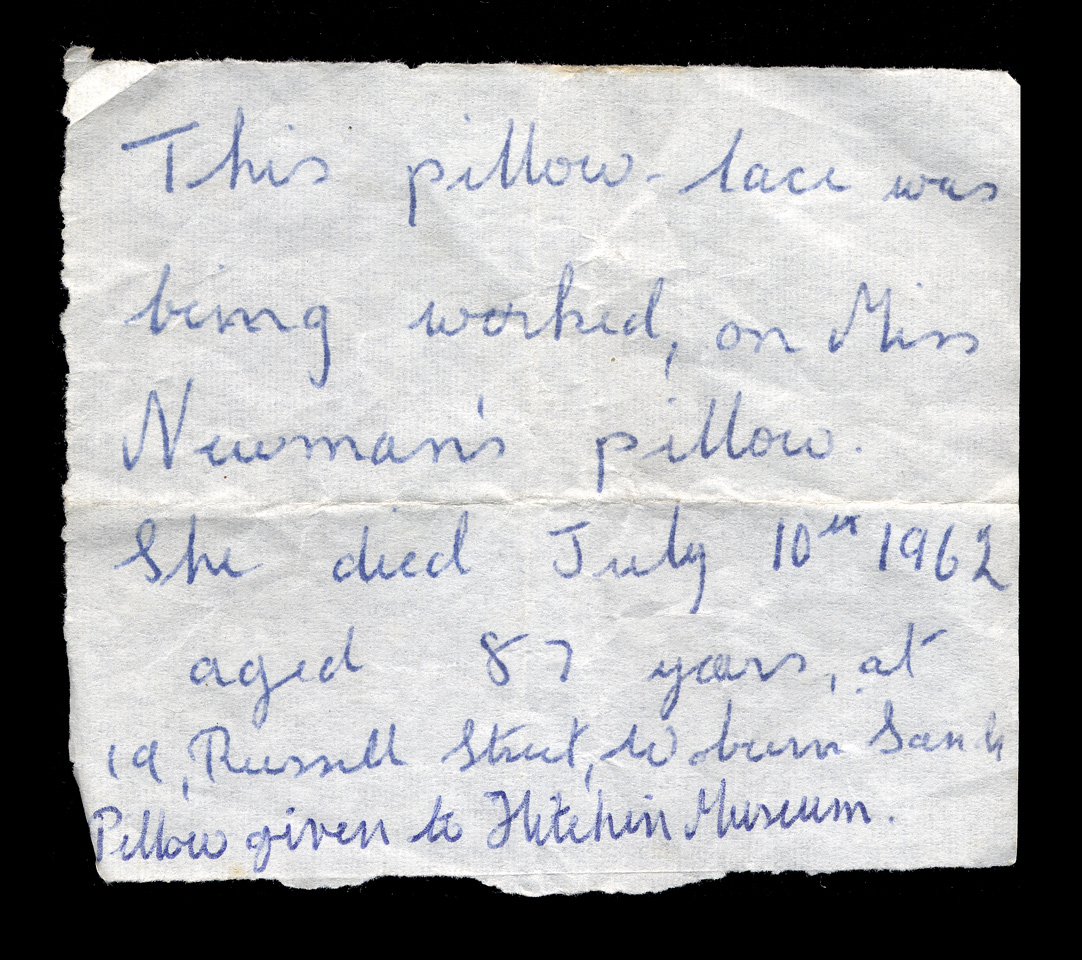 This pillow-lace was
being worked, on Miss
Newman's pillow.
She died July 10th 1962
aged 87 years, at
19, Russell Street, Woburn Sands
Pillow given to Hitchin Museum.